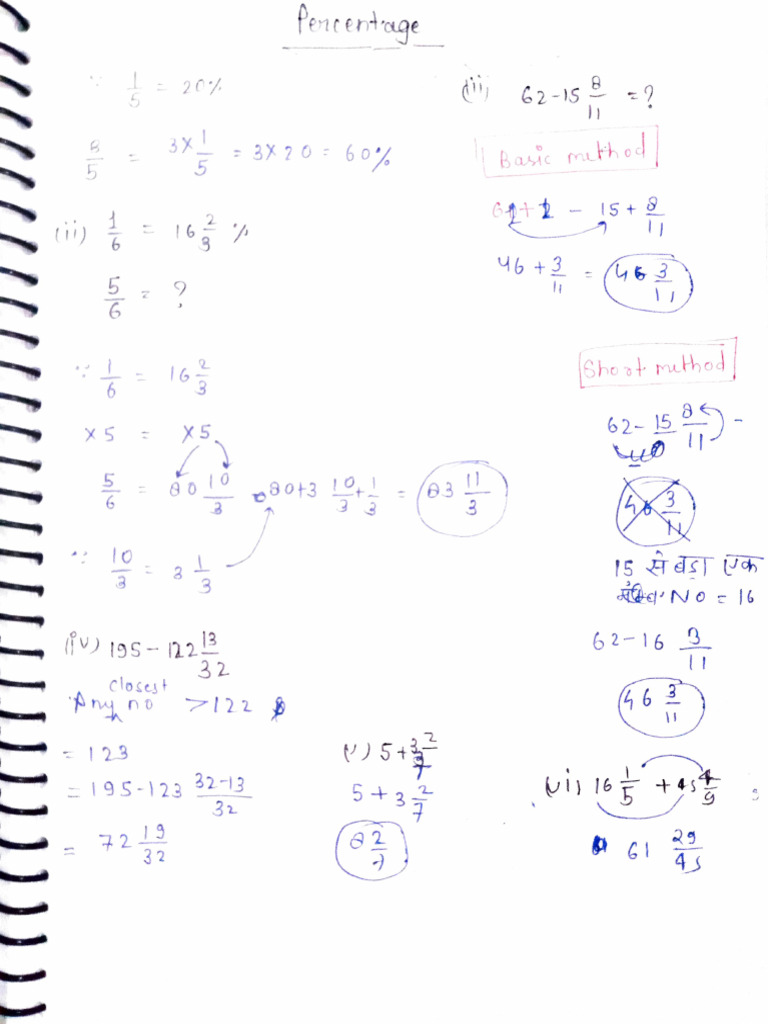 Percentage
∵ 1/5 = 20%
3/5 = 3×1/5 = 3×20 = 60%
(ii) 1/6 = 16 2/3 %
5/6 = ?
∵ 1/6 = 16 2/3
×5 = ×5
5/6 = 80 10/3 = 80+3 10/3+1/3 = 83 11/3
∵ 10/3 = 3 1/3
(iv) 195-122 13/32
closest
Any no >122
= 123
= 195-123 32-13/32
= 72 19/32
(v) 5+3 2/7
5+3 2/7
8 2/7
(iii) 62-15 8/11 = ?
Basic method
61+1 - 15+8/11
46+3/11 = 46 3/11
Short method
62-15 8/11
46 3/11
15 से बड़ा एक
No = 16
62-16 3/11
46 3/11
(vi) 16 1/5 + 45 4/9
61 29/45